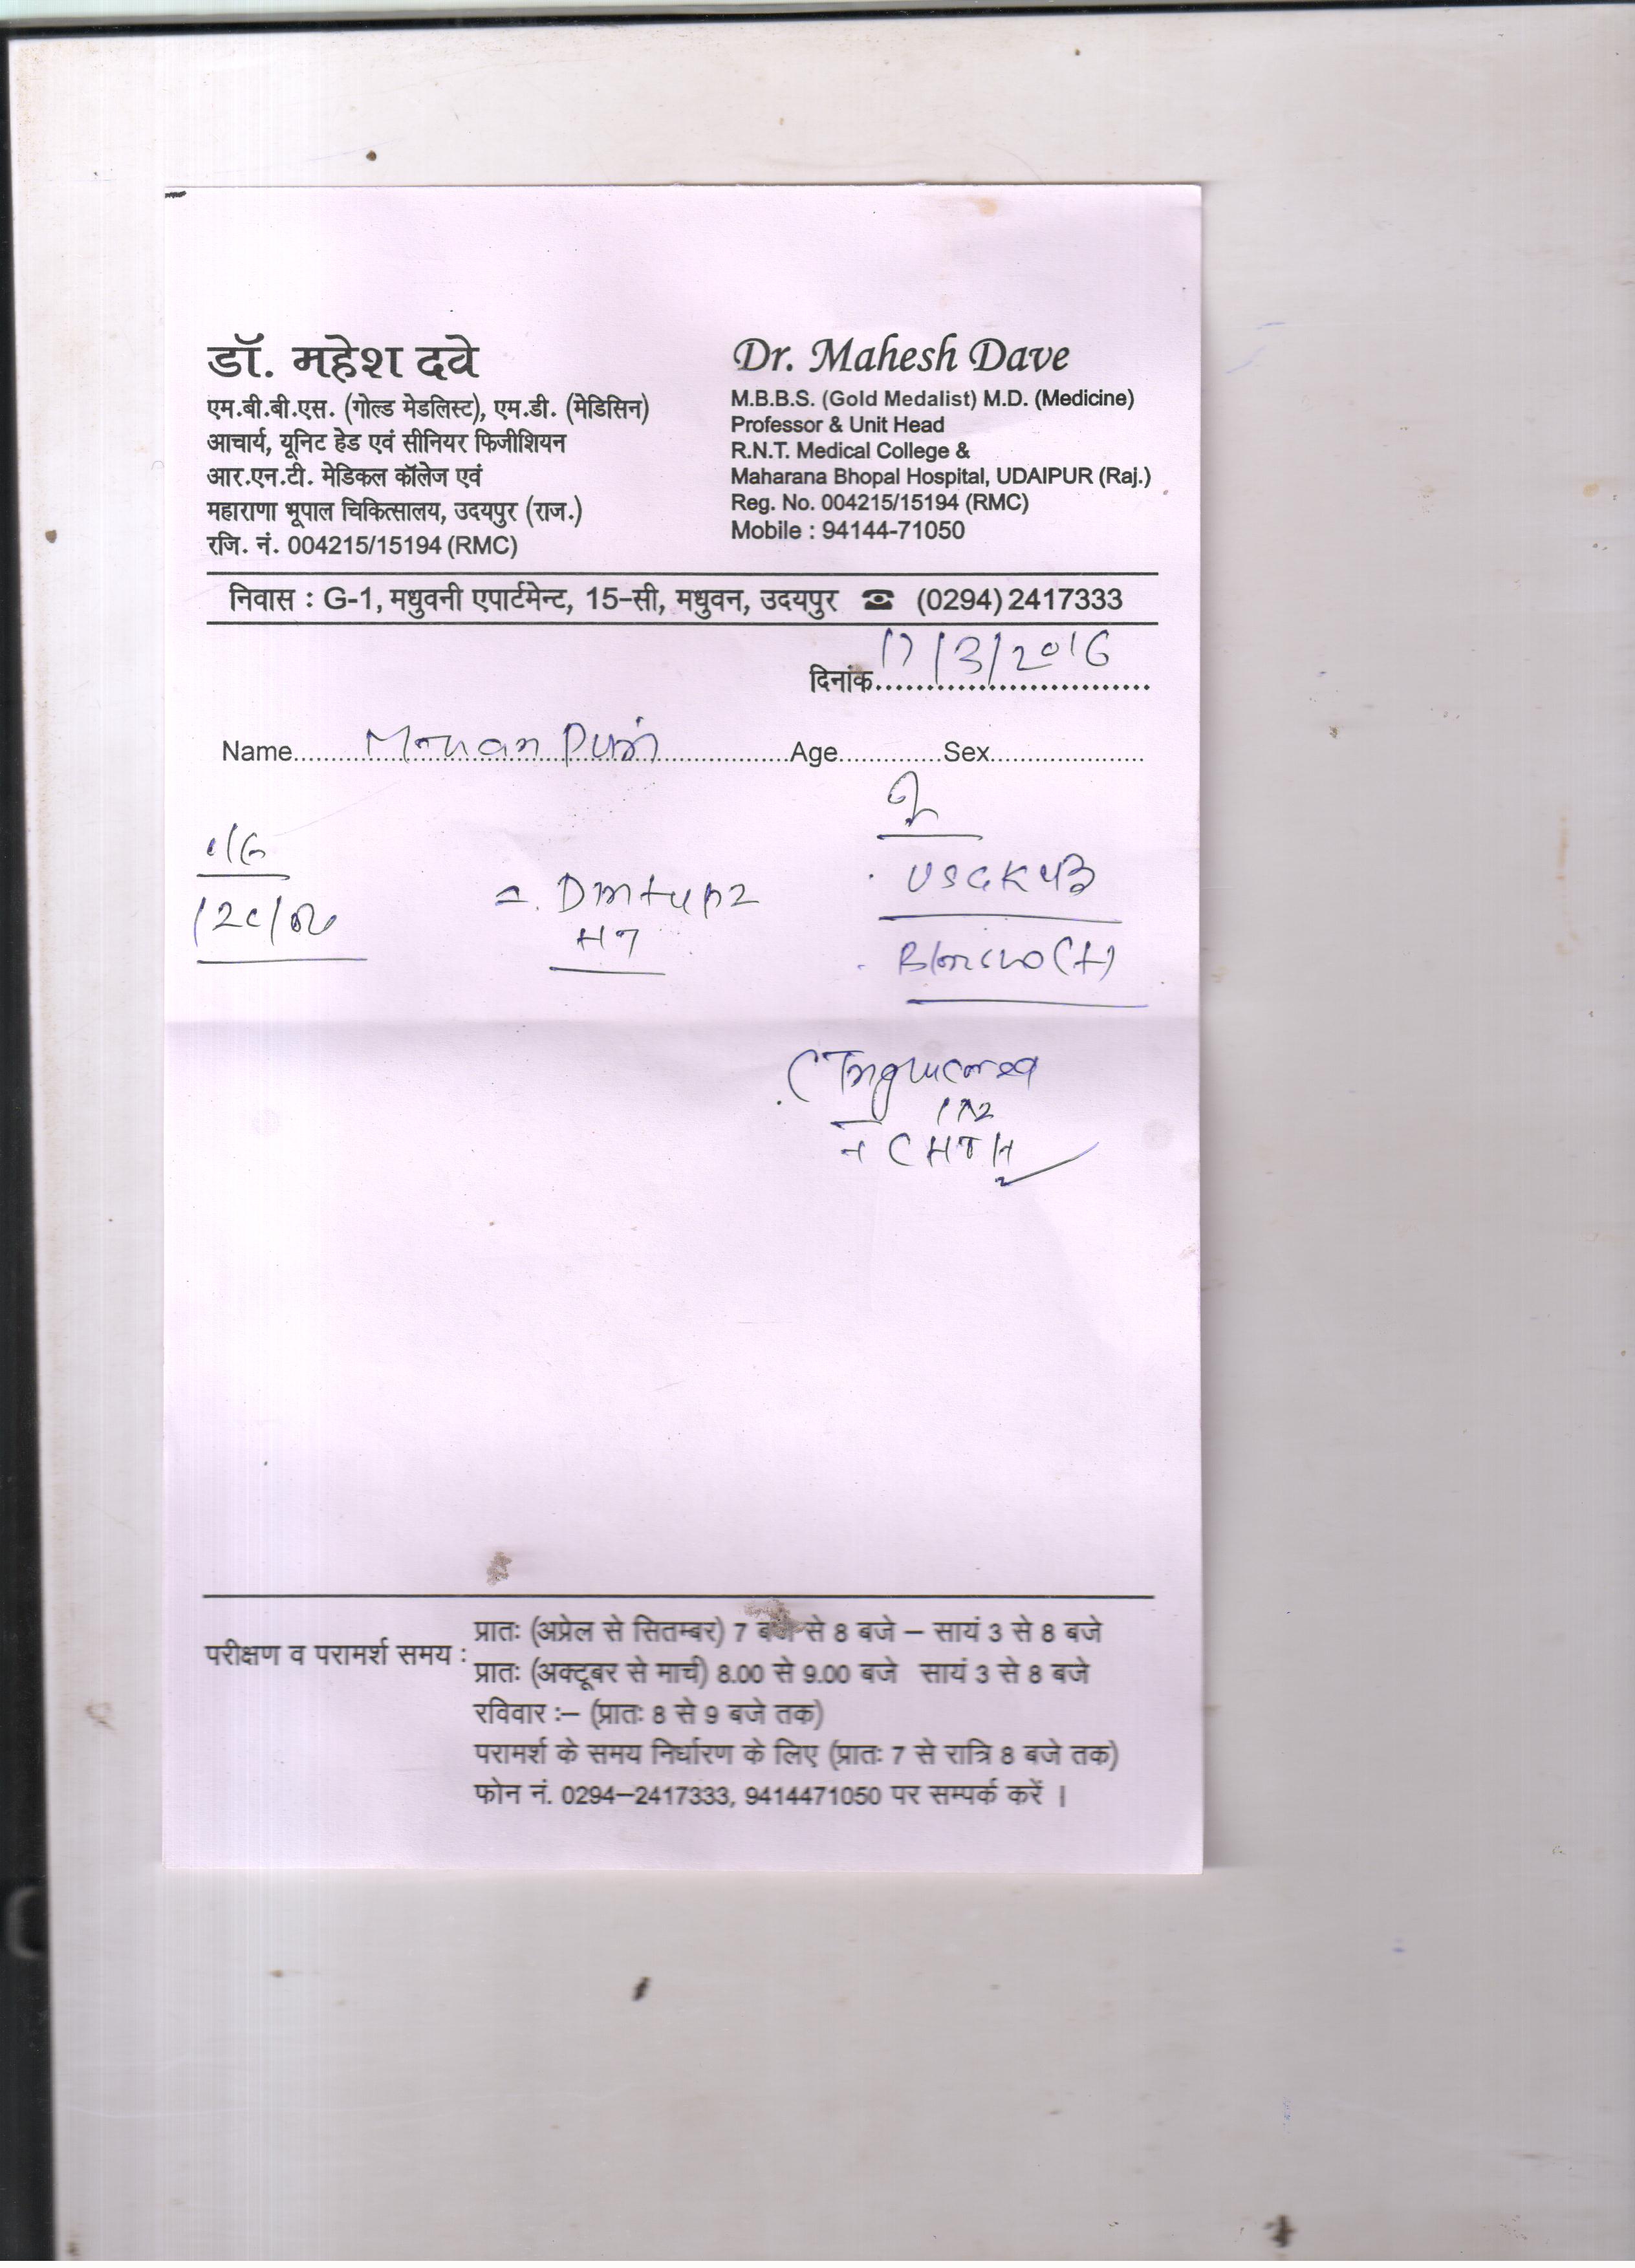 डॉ. महेश दवे
एम.बी.बी.एस. (गोल्ड मेडलिस्ट), एम.डी. (मेडिसिन)
आचार्य, यूनिट हेड एवं सीनियर फिजीशियन
आर.एन.टी. मेडिकल कॉलेज एवं
महाराणा भूपाल चिकित्सालय, उदयपुर (राज.)
रजि. नं. 004215/15194 (RMC)
Dr. Mahesh Dave
M.B.B.S. (Gold Medalist) M.D. (Medicine)
Professor & Unit Head
R.N.T. Medical College &
Maharana Bhopal Hospital, UDAIPUR (Raj.)
Reg. No. 004215/15194 (RMC)
Mobile : 94144-71050
निवास : G-1, मधुवनी एपार्टमेन्ट, 15-सी, मधुवन, उदयपुर ☎ (0294) 2417333
दिनांक 17/3/2016
Name Mohan Puri Age Sex
USG KUB
परीक्षण व परामर्श समय :
प्रातः (अप्रेल से सितम्बर) 7 बजे से 8 बजे – सायं 3 से 8 बजे
प्रातः (अक्टूबर से मार्च) 8.00 से 9.00 बजे सायं 3 से 8 बजे
रविवार :– (प्रातः 8 से 9 बजे तक)
परामर्श के समय निर्धारण के लिए (प्रातः 7 से रात्रि 8 बजे तक)
फोन नं. 0294–2417333, 9414471050 पर सम्पर्क करें ।